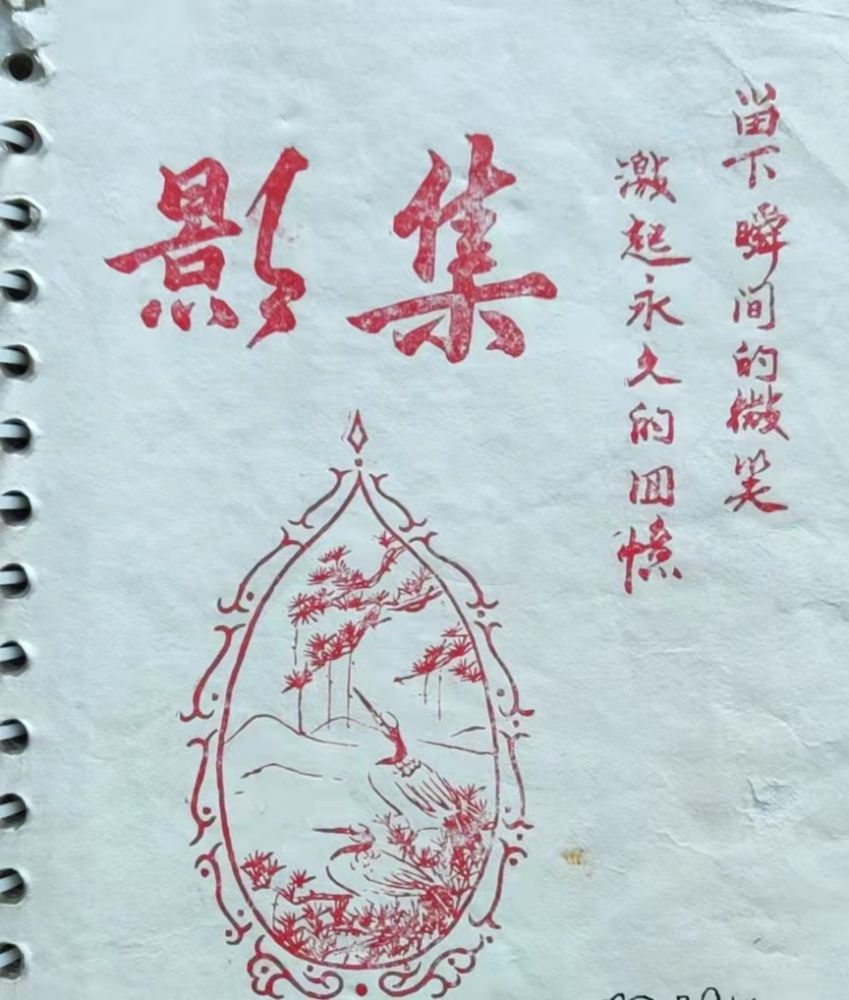 影集
留下瞬间的微笑
激起永久的回憶